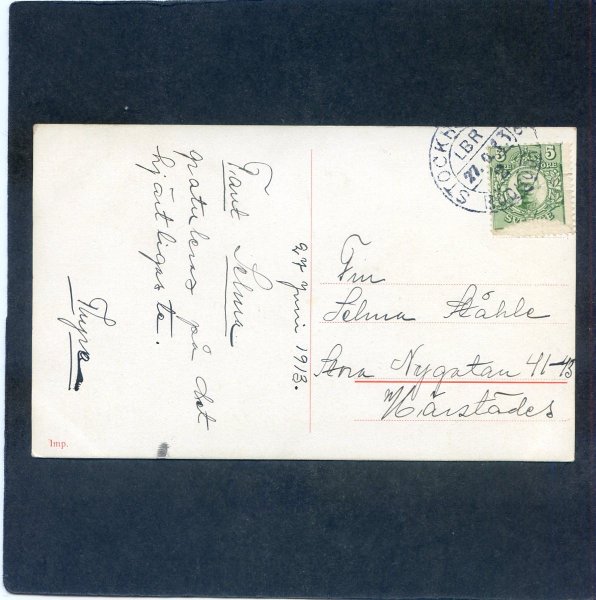 Tant Selma
gratuleras på det
hjärtligaste.
Thyra
27 juni 1913.
STOCKH
LBR
27.6.13
5 5
ÖRE
SVERIGE
Fru
Selma Ståhle
Stora Nygatan 41-43
Härstädes
Imp.